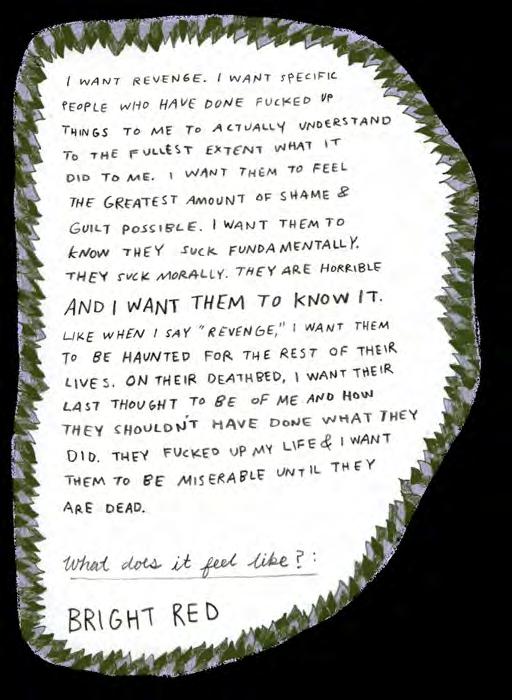 I WANT REVENGE. I WANT SPECIFIC
PEOPLE WHO HAVE DONE FUCKED UP
THINGS TO ME TO ACTUALLY UNDERSTAND
TO THE FULLEST EXTENT WHAT IT
DID TO ME. I WANT THEM TO FEEL
THE GREATEST AMOUNT OF SHAME &
GUILT POSSIBLE. I WANT THEM TO
KNOW THEY SUCK FUNDAMENTALLY.
THEY SUCK MORALLY. THEY ARE HORRIBLE
AND I WANT THEM TO KNOW IT.
LIKE WHEN I SAY "REVENGE," I WANT THEM
TO BE HAUNTED FOR THE REST OF THEIR
LIVES. ON THEIR DEATHBED, I WANT THEIR
LAST THOUGHT TO BE OF ME AND HOW
THEY SHOULDN'T HAVE DONE WHAT THEY
DID. THEY FUCKED UP MY LIFE & I WANT
THEM TO BE MISERABLE UNTIL THEY
ARE DEAD.
What does it feel like?:
BRIGHT RED